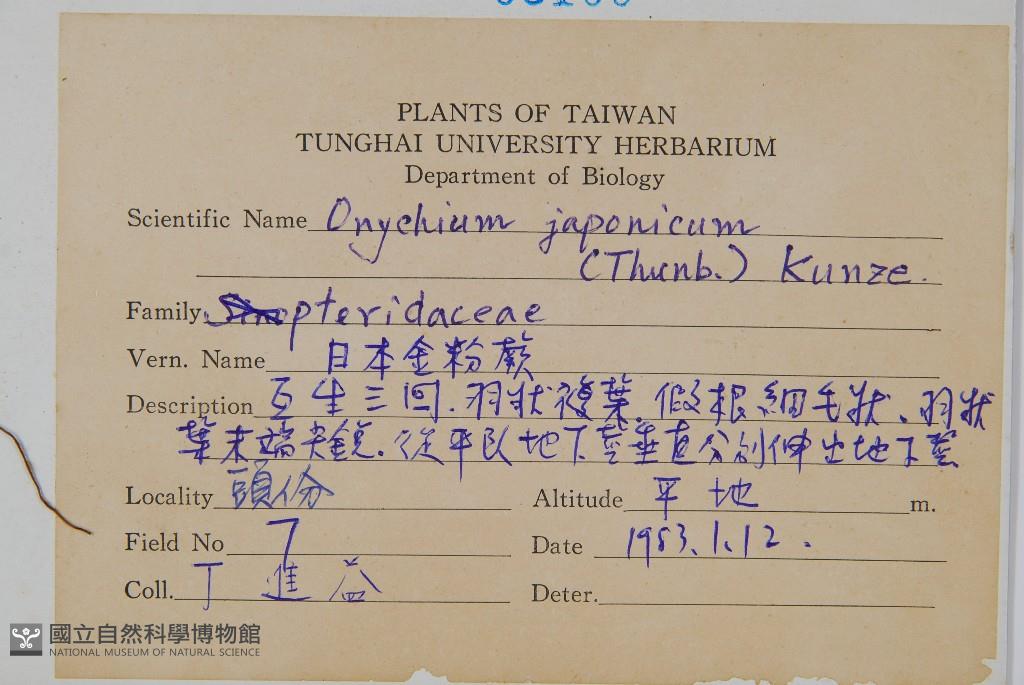 PLANTS OF TAIWAN
TUNGHAI UNIVERSITY HERBARIUM
Department of Biology
Scientific Name Onychium japonicum
(Thunb.) Kunze.
Family pteridaceae
Vern. Name 日本金粉蕨
Description 互生三回.羽狀複葉.假根細毛狀.羽狀
葉末端尖銳.從平臥地下莖垂直分別伸出地下莖
Locality 頭份 Altitude 平地 m.
Field No 7 Date 1983.1.12.
Coll. 丁進益 Deter.
國立自然科學博物館
NATIONAL MUSEUM OF NATURAL SCIENCE